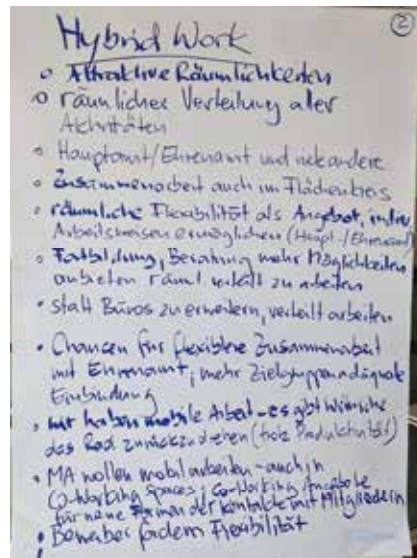 ②
Hybrid Work
o Attraktive Räumlichkeiten
o räumlicher Verteilung aller
Aktivitäten
o Hauptamt/Ehrenamt und
o Zusammenarbeit auch im Flächenkreis
o räumliche Flexibilität als Angebot,
Arbeitsweisen ermöglichen (Haupt-/Ehrenamt)
o Fortbildung, Beratung mehr Möglichkeiten
anbieten räuml. verteilt zu arbeiten
• statt Büros zu erweitern, verteilt arbeiten
• Chancen für flexiblere Zusammenarbeit
mit Ehrenamt, mehr Zielgruppenadäquate
Einbindung
• wir haben mobile Arbeit - es gibt Wünsche
das Rad zurückzudrehen (trotz Produktivität)
• MA wollen mobil arbeiten - auch in
Co-Working Spaces; Co-Working Angebote
für neue Formen der Kontakte mit Mitgliedern
• Bewerber fordern Flexibilität